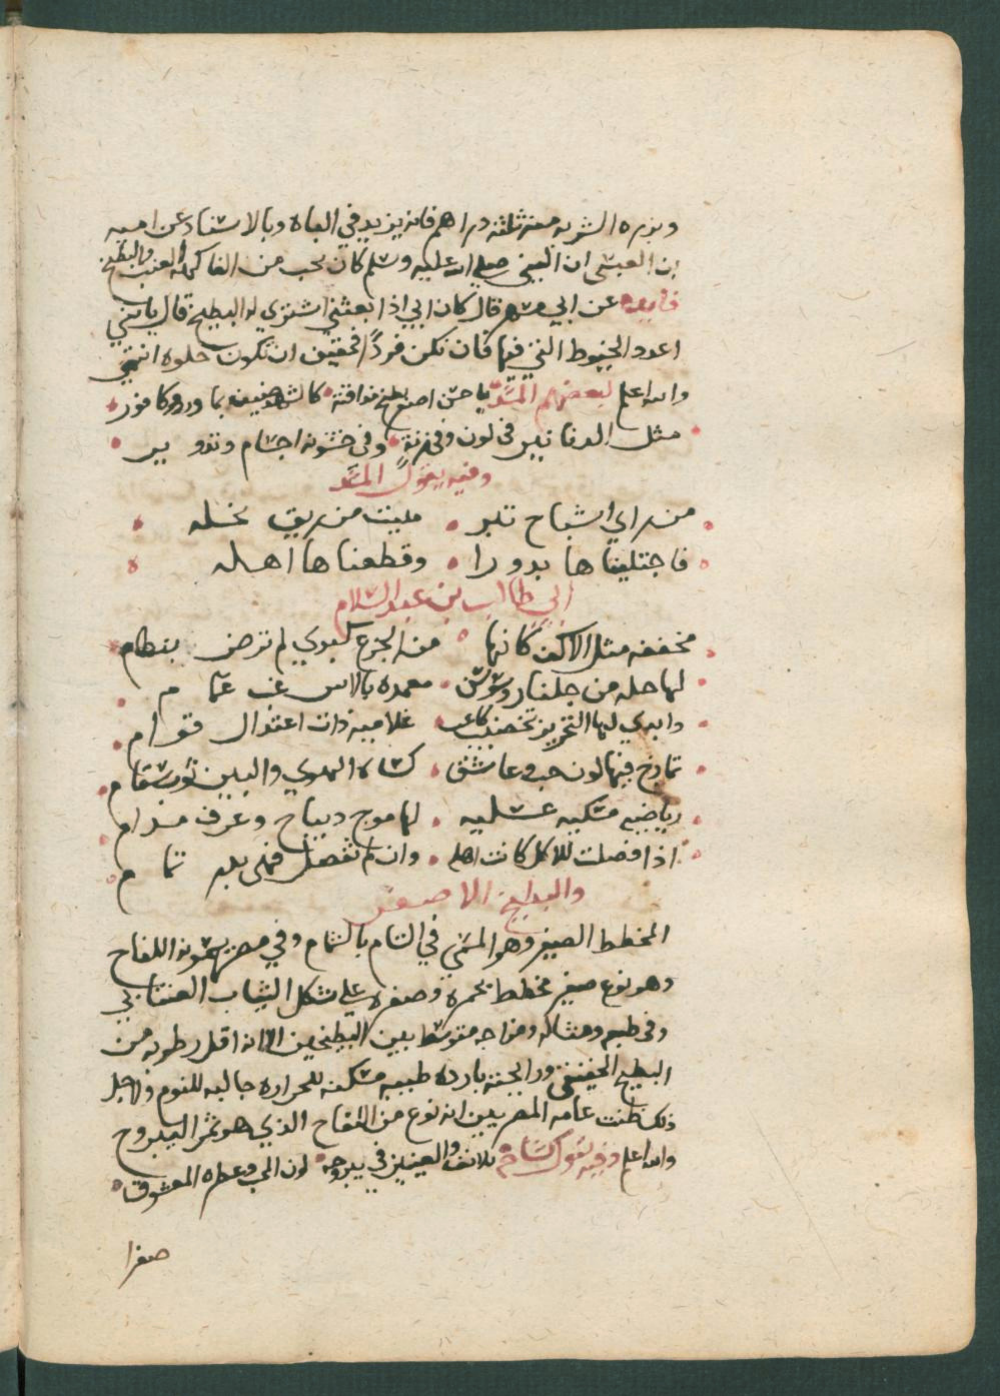 وبزره الشربه منه ثلثة دراهم فانه يزيد في الباه وبالاسناد عن اميه
بن العبسى ان النبي صلي الله عليه وسلم كان يحب من الفاكهة العنب والبطيخ
فايده عن ابي مسهر قال كان ابي اذا بعثني اشتري له البطيخ قال يا بني
اعدد الخيوط التي فيها فان تكن فرداً فحقيق ان تكون حلوه انتهي
والله اعلم لبعضهم المسد يا حسن اصفر بطيخ مذاقته كالشهد ضيف بماورد وكافور
مثل الدنانير في لون وفي زنة وفي خشونه اجسام وتدوير
وفيه يقول المسد
من راي اشباح تبر مليت من ريق نحله
فاجتليناها بدورا وقطعناها اهله
ابي طالب بن عبد السلام
مخففه مثل الاكف كانها من الجزع كبري لم ترض بنظام
لها حله من جلنار وسوسن معمده بالاس غب غمام
وابدي لها التحزيز تخضيب كاعب غلاميه ذات اعتدال قوام
تمازج فيها لون حب وعاشق كساه الهوي والبين ثوب سقام
رياضيه مسكيه عسليه لها موج ديباج وعرف مدام
اذا فصلت للاكل كانت اهله وان لم تفصل فهي بدر تمام
والبطيخ الاصفر
المخطط الصغير وهو المسمي في الشام بالشمام وفي مصر يسمونه اللفاح
وهو نوع صغير مخطط بحمره وصفره علي شكل الثياب العتابي
وفي طبعه ومثاله ومزاجه متوسط بين البطيخين الا انه اقل رطوبه من
البطيخ الحقيقي ورايحته بارده طيبه مسكنه للحراره جالبه للنوم ولاجل
ذلك ظنت عامه المصريين انه نوع من اللفاح الذي هو ثمر اليبروح
والله اعلم وفيه يقول كشاجم للانف والعينين في يبروحه لون المحب وعطره المعشوق
صفرا